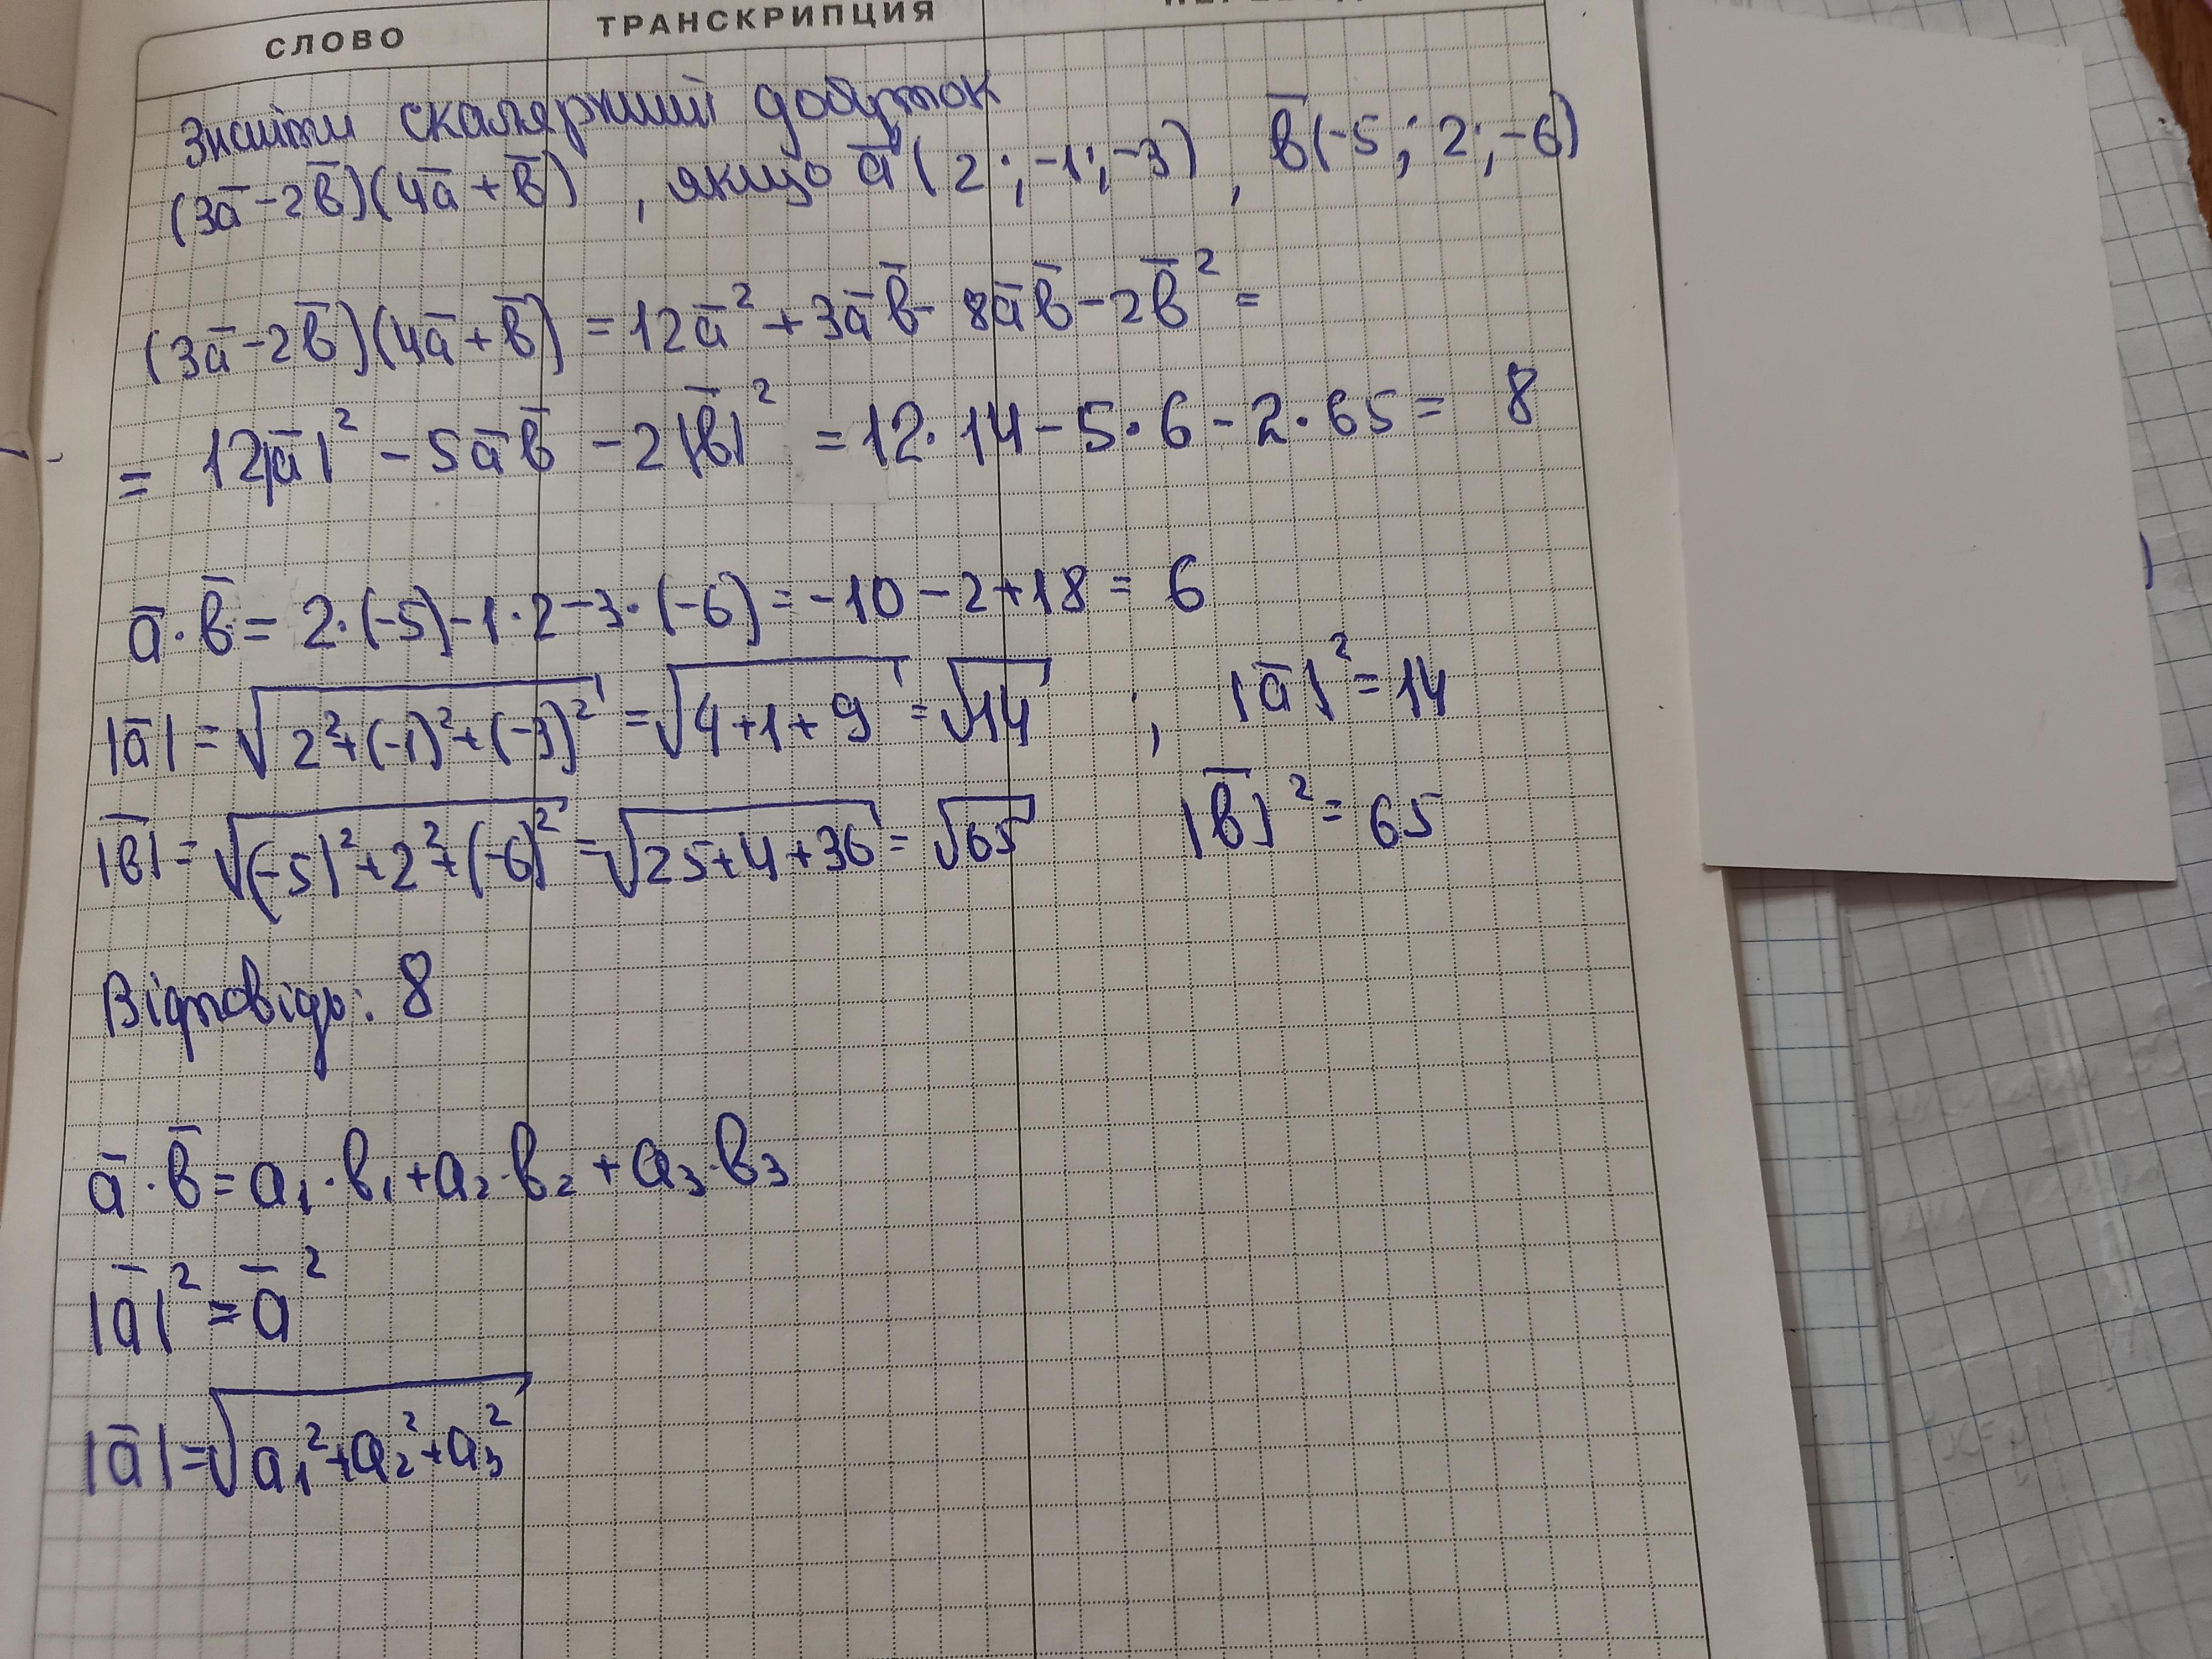 СЛОВО ТРАНСКРИПЦИЯ
Знайти скалярний добуток
(3a̅ - 2b̅)(4a̅ + b̅) , якщо a̅ (2 ; -1 ; -3) , b̅(-5 ; 2 ; -6)
(3a̅ - 2b̅)(4a̅ + b̅) = 12a̅² + 3a̅b̅ - 8a̅b̅ - 2b̅² =
= 12|a̅|² - 5a̅b̅ - 2|b̅|² = 12·14 - 5·6 - 2·65 = 8
a̅·b̅ = 2·(-5) - 1·2 - 3·(-6) = -10 - 2 + 18 = 6
|a̅| = √(2² + (-1)² + (-3)²) = √(4+1+9) = √14 ; |a̅|² = 14
|b̅| = √((-5)² + 2² + (-6)²) = √(25+4+36) = √65 |b̅|² = 65
Відповідь: 8
a̅·b̅ = a₁·b₁ + a₂·b₂ + a₃·b₃
|a̅|² = a̅²
|a̅| = √(a₁² + a₂² + a₃²)